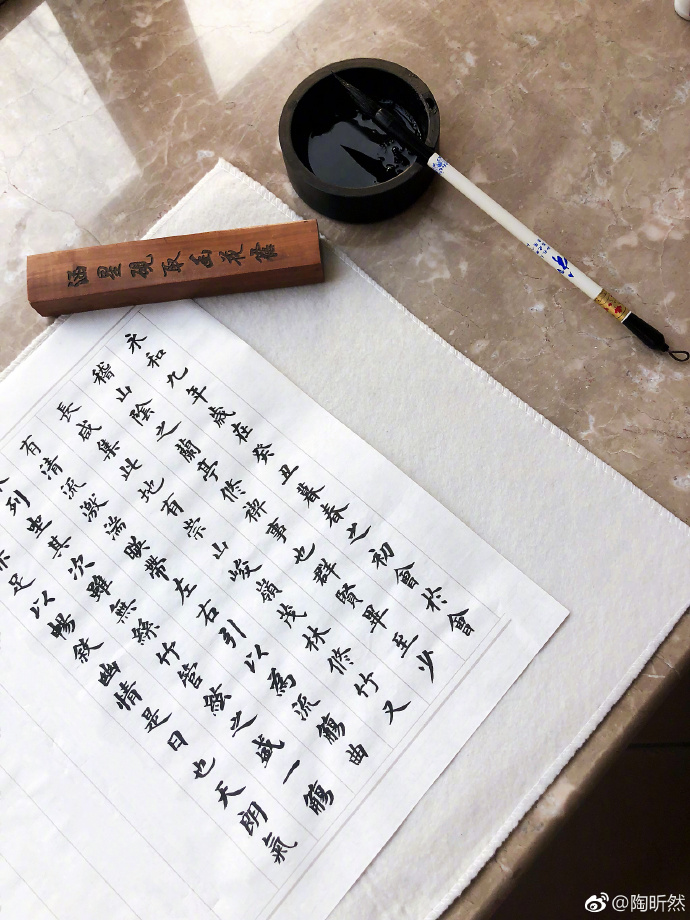 涵星硯取幽花露
永和九年歲在癸丑暮春之初會於會
稽山陰之蘭亭修禊事也群賢畢至少
長咸集此地有崇山峻嶺茂林修竹又
有清流激湍暎帶左右引以為流觴曲
水列坐其次雖無絲竹管絃之盛一觴
亦足以暢敘幽情是日也天朗氣
@陶昕然